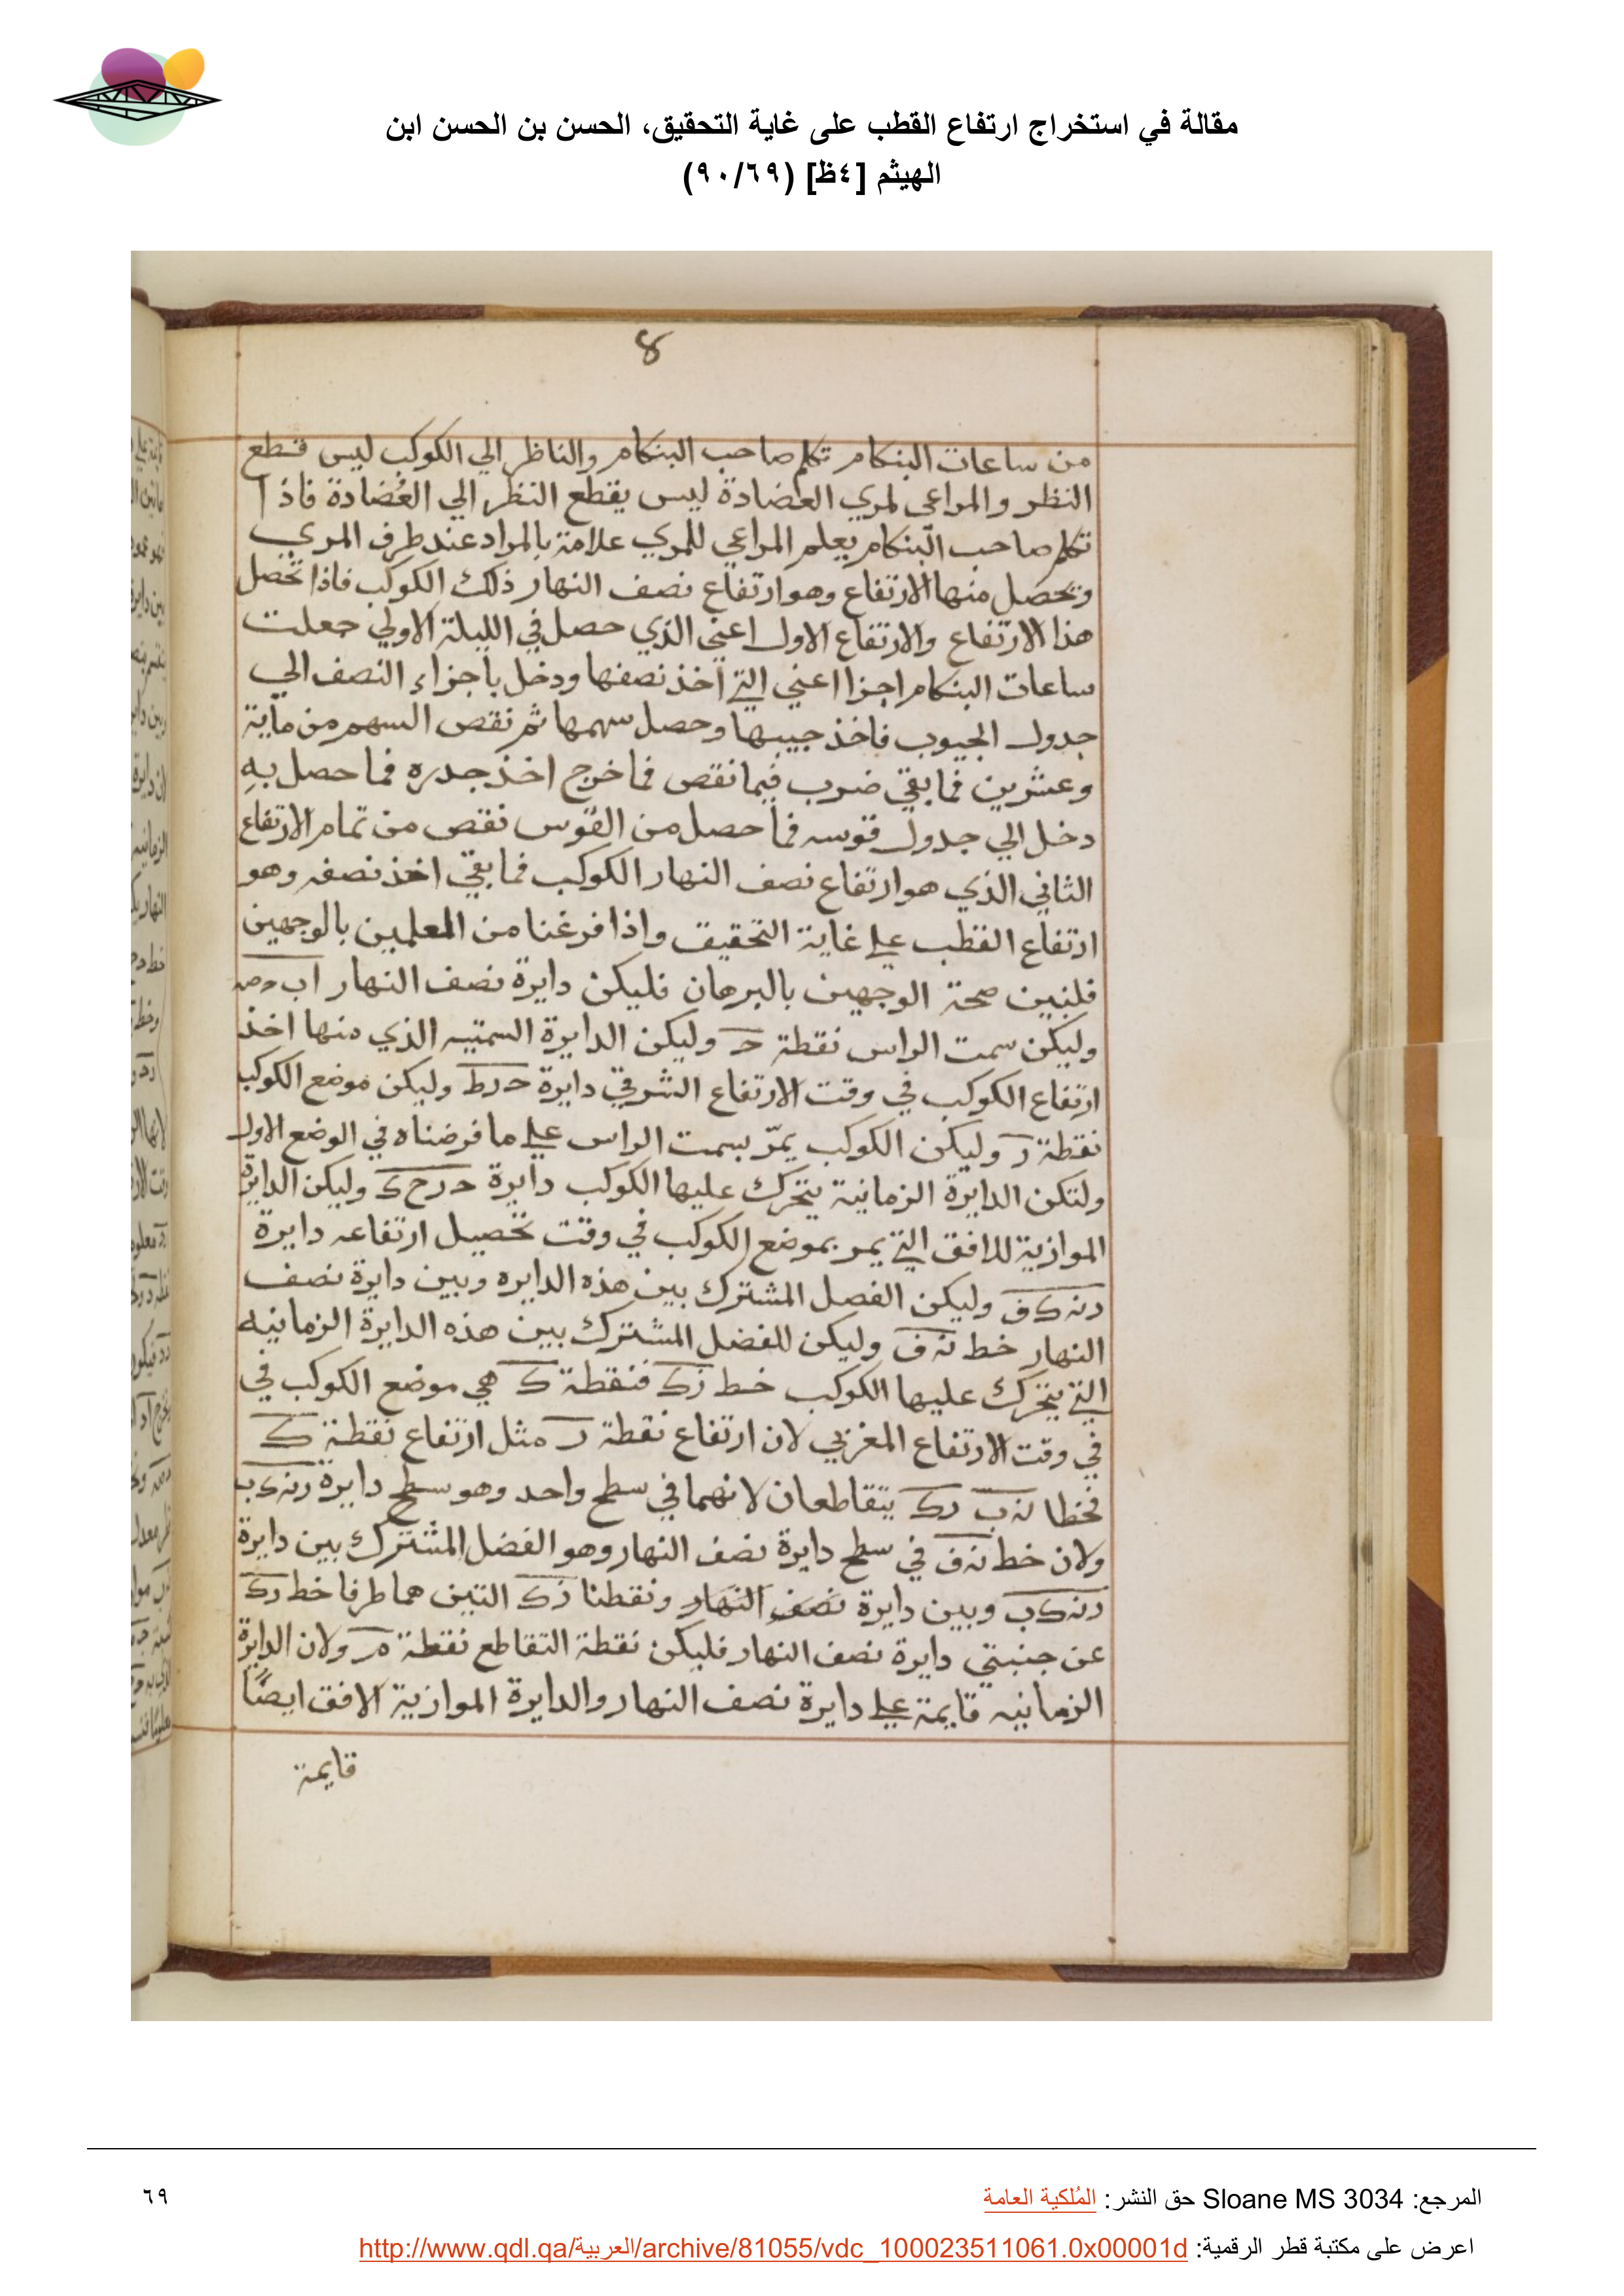 مقالة في استخراج ارتفاع القطب على غاية التحقيق، الحسن بن الحسن ابن
الهيثم [٤ظ] (٩٠/٦٩)
8
من ساعات البنكام تكلم صاحب البنكام والناظر الي الكوكب ليس قطع
النظر والمراعي لمري العضادة ليس يقطع النظر الي العُضادة فاذا
تكلم صاحب البنكام يعلم المراعي للمري علامة بالمراد عند طرف المري
وتحصل منها الارتفاع وهو ارتفاع نصف النهار ذلك الكوكب فاذا تحصل
هذا الارتفاع والارتفاع الاول اعني الذي حصل في الليلة الاولي جعلت
ساعات البنكام اجزا اعني التي اخذ نصفها ودخل باجزاء النصف الي
جدول الجيوب فاخذ جيبها وحصل سهمها ثم نقص السهم من ماية
وعشرين فما بقي ضرب فيما نقص فما خرج اخذ جدره فما حصل به
دخل الي جدول قوسه فما حصل من القوس نقص من تمام الارتفاع
الثاني الذي هو ارتفاع نصف النهار الكوكب فما بقي اخذ نصفه وهو
ارتفاع القطب علي غاية التحقيق واذا فرغنا من المعلمين بالوجهين
فلنبين صحة الوجهين بالبرهان فليكن دايرة نصف النهار اب
وليكن سمت الراس نقطة ح وليكن الدايرة السمتيه الذي منها اخذ
ارتفاع الكوكب في وقت الارتفاع الشرقي دايرة حرط وليكن موضع الكوكب
نقطة ر وليكن الكوكب يمرّ بسمت الراس علي ما فرضناه في الوضع الاول
ولتكن الدايرة الزمانية يتحرك عليها الكوكب دايرة حرحك وليكن الدايرة
الموازية للافق التي يمر بموضع الكوكب في وقت تحصيل ارتفاعه دايرة
رنهكف وليكن الفصل المشترك بين هذه الدايره وبين دايرة نصف
النهار خط نهف وليكن للفضل المشترك بين هذه الدايرة الزمانيه
التي يتحرك عليها الكوكب خط زك فنقطة ك هي موضع الكوكب في
في وقت الارتفاع المغربي لان ارتفاع نقطة ر مثل ارتفاع نقطة ك
فخطا نهب رك يتقاطعان لانهما في سطح واحد وهو سطح دايرة رنهكب
ولان خط نهف في سطح دايرة نصف النهار وهو الفضل المشترك بين دايرة
رنهكب وبين دايرة نصف النهار ونقطتا زك التين هما طرفا خط رك
عن جنبتي دايرة نصف النهار فليكن نقطة التقاطع نقطة م ولان الدايرة
الزمانيه قايمة علي دايرة نصف النهار والدايرة الموازية الافق ايضًا
قايمة
المرجع: Sloane MS 3034 حق النشر: المُلكية العامة
٦٩
اعرض على مكتبة قطر الرقمية: http://www.qdl.qa/العربية/archive/81055/vdc_100023511061.0x00001d